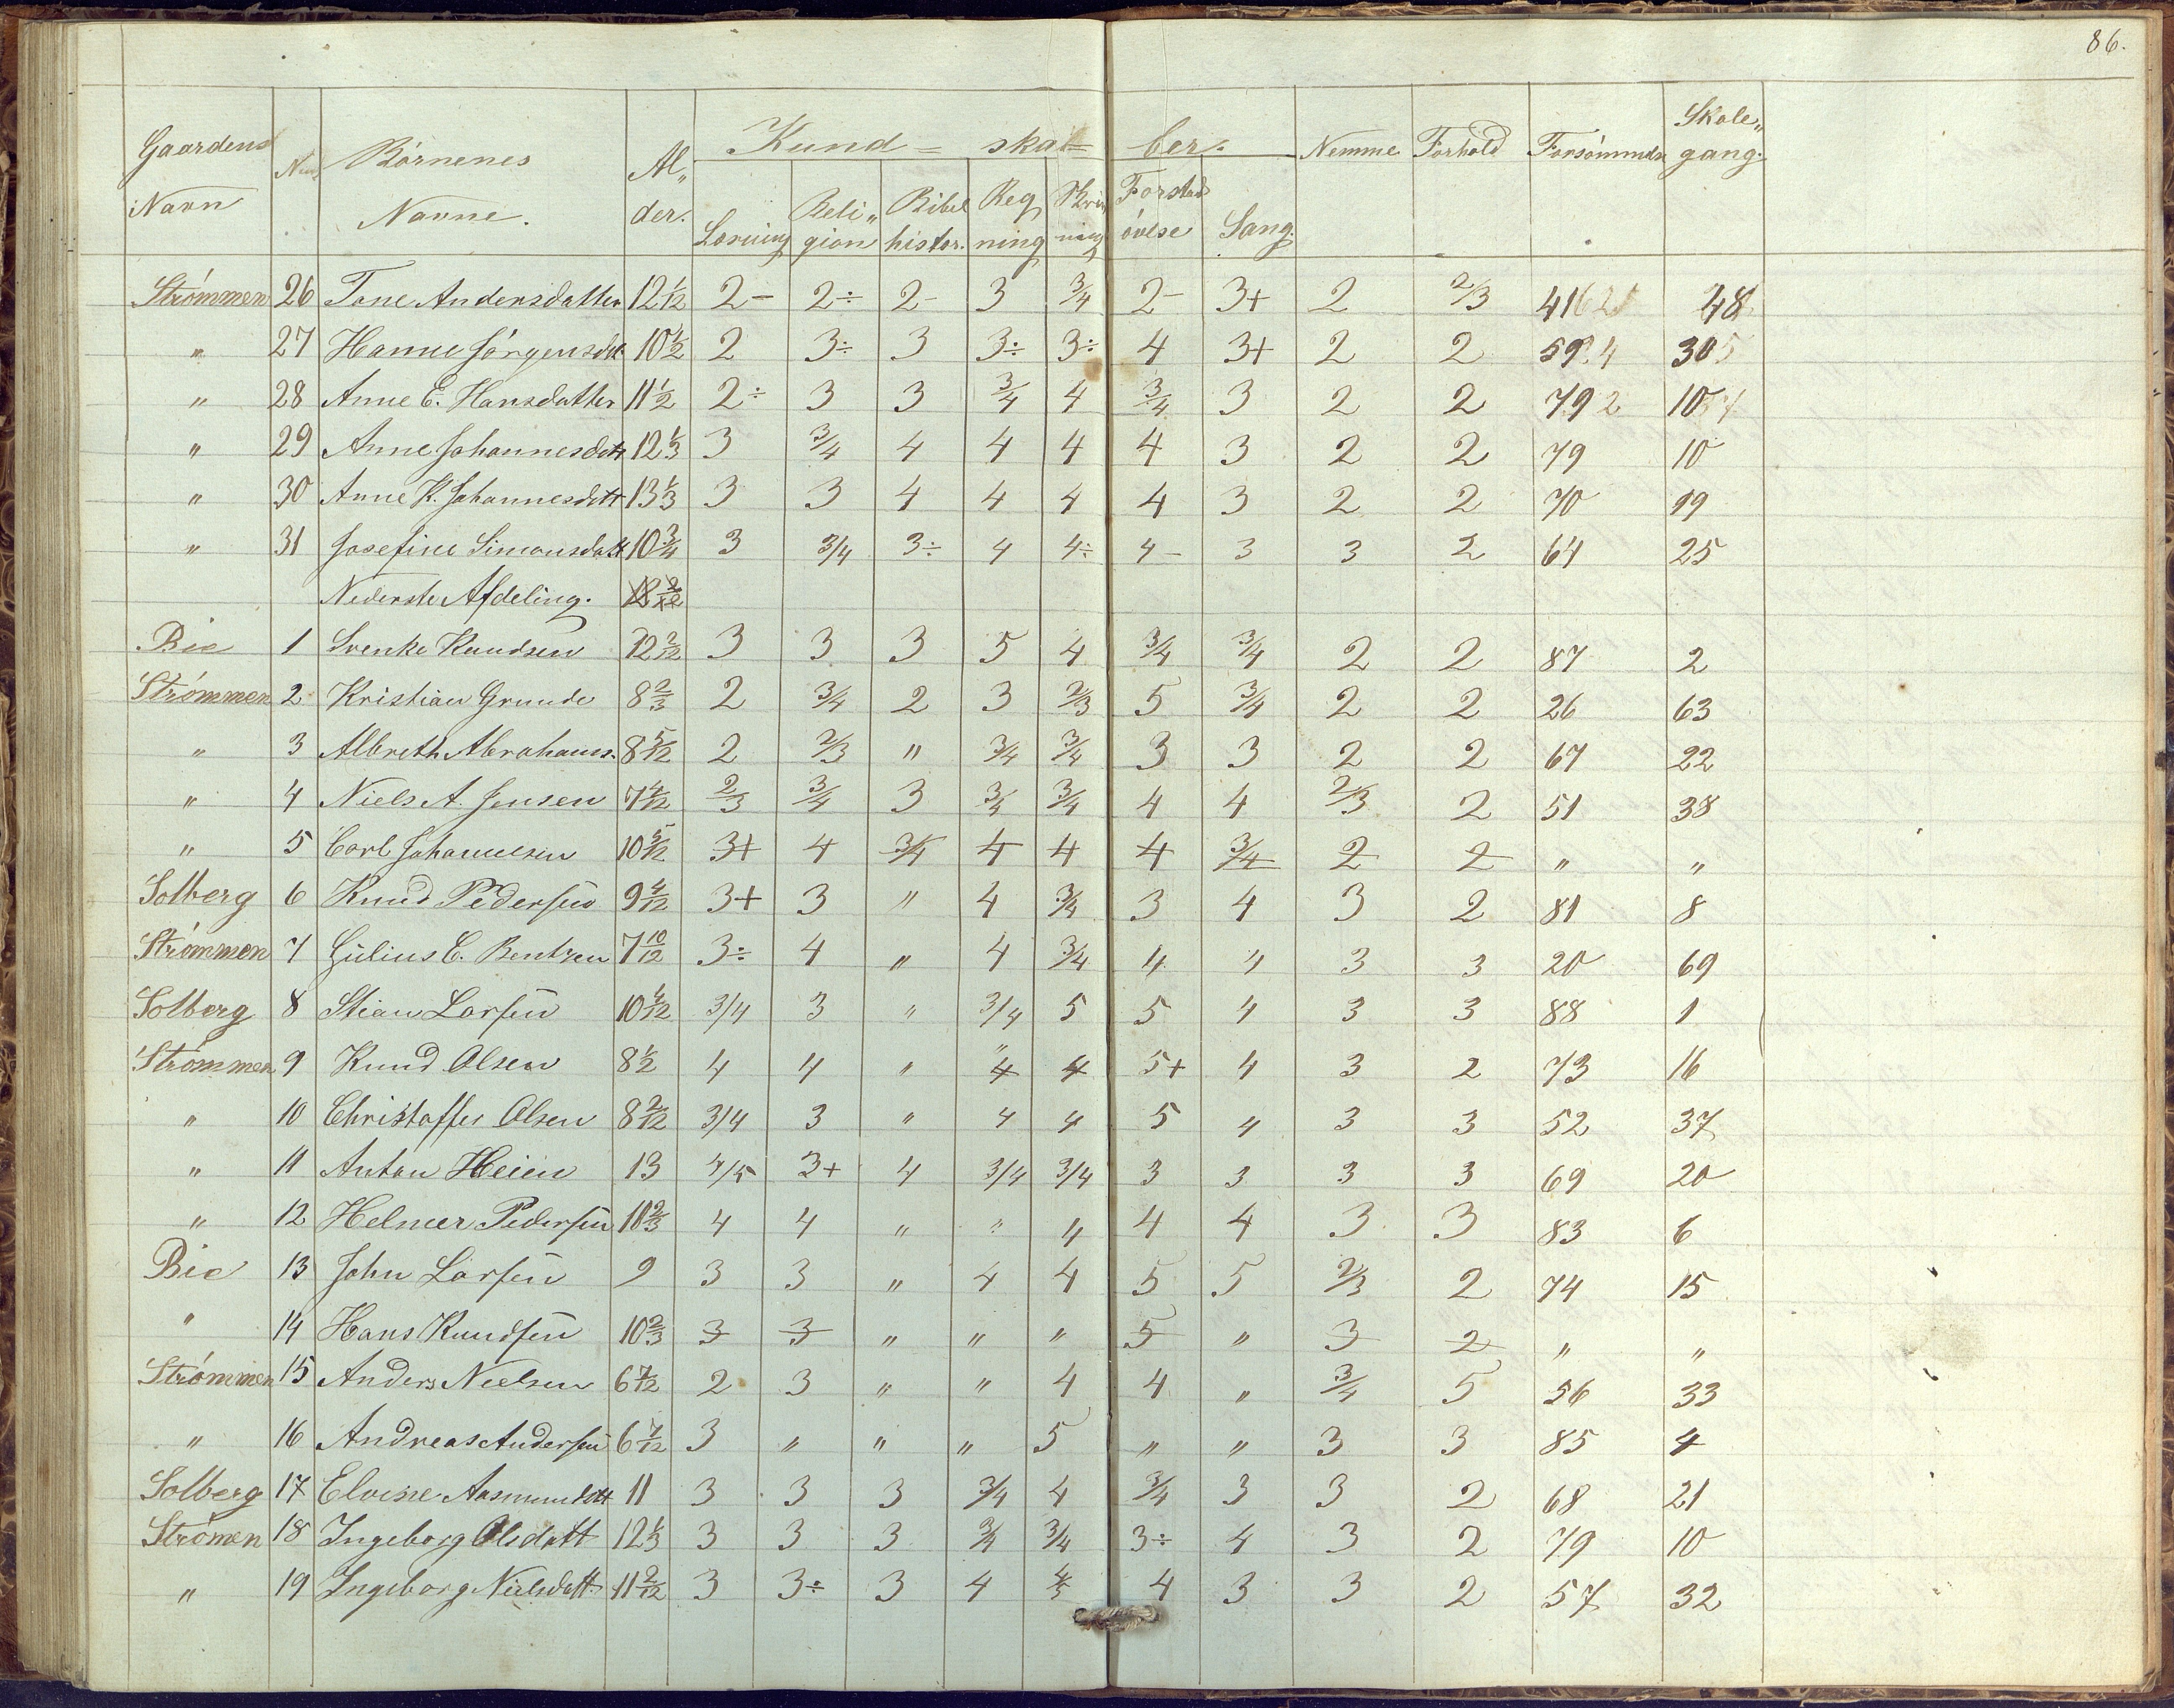 86.
Gaardens Navn | Num | Börnenes Navne. | Al„ der. | Kund = skab = ber. | Nemme | Forhold | Forsömmelse | Skole„ gang.
Læsning | Reli„ gion | Bibel histor. | Reg ning | Skriv ning | Forstads övelse | Sang.
Strömmen 26 Tone Andersdatter 12 1/12 2- 2÷ 2- 3 3/4 2- 3+ 2 2/3 41 48
„ 27 Hanne Jörgensdtt 10 1/2 2 3÷ 3 3÷ 3÷ 4 3+ 2 2 59 30
„ 28 Anne E. Hansdatter 11 1/2 2÷ 3 3 3/4 4 3/4 3 2 2 79 10
„ 29 Anne Johannesdtt 12 1/3 3 3/4 4 4 4 4 3 2 2 79 10
„ 30 Anne K. Johannesdtt 13 1/3 3 3 4 4 4 4 3 2 2 70 19
„ 31 Josefine Simonsdatt 10 3/4 3 3/4 3÷ 4 4÷ 4- 3 3 2 64 25
Nederste Afdeling.
Bie 1 Svenke Knudsen 12 2/12 3 3 3 5 4 3/4 3/4 2 2 87 2
Strömmen 2 Kristian Grunde 8 2/3 2 3/4 2 3 2/3 5 3/4 2 2 26 63
„ 3 Albreth Abrahams. 8 5/12 2 2/3 „ 3/4 3/4 3 3 2 2 67 22
„ 4 Niels A. Jensen 7 4/12 2/3 3/4 3 3/4 3/4 4 4 2/3 2 51 38
„ 5 Carl Johannesen 10 5/12 3+ 4 3/4 4 4 4 3/4 2 2 „ „
Solberg 6 Knud Pedersen 9 4/12 3+ 3 „ 4 3/4 3 4 3 2 81 8
Strömmen 7 Gulius C. Bentzen 7 10/12 3÷ 4 „ 4 3/4 4 4 3 3 20 69
Solberg 8 Stian Larsen 10 4/12 3/4 3 „ 3/4 5 5 4 3 3 88 1
Strömmen 9 Knud Olsen 8 1/2 4 4 „ 4 4 5+ 4 3 2 73 16
„ 10 Christoffer Olsen 8 2/12 3/4 3 „ 4 4 5 4 3 3 52 37
„ 11 Anton Heien 13 4/5 3+ 4 3/4 3/4 3 3 3 3 69 20
„ 12 Helmer Pedersen 10 2/3 4 4 „ „ „ 4 4 3 3 83 6
Bie 13 John Larsen 9 3 3 „ 4 4 5 5 2/3 2 74 15
„ 14 Hans Knudsen 10 2/3 3 3 „ „ „ 5 „ 3 2 „ „
Strömmen 15 Anders Nielsen 6 7/12 2 3 „ „ 4 4 „ 3/4 5 56 33
„ 16 Andreas Andersen 6 7/12 3 „ „ „ 5 „ „ 3 3 85 4
Solberg 17 Elvine Aasmundtt 11 3 3 3 3/4 4 3/4 3 3 2 68 21
Strömen 18 Ingeborg Olsdatt 12 1/3 3 3 3 3/4 3/4 3÷ 4 3 2 79 10
„ 19 Ingeborg Nielsdatt. 11 2/12 3 3÷ 3 4 4/3 4 3 3 2 57 32